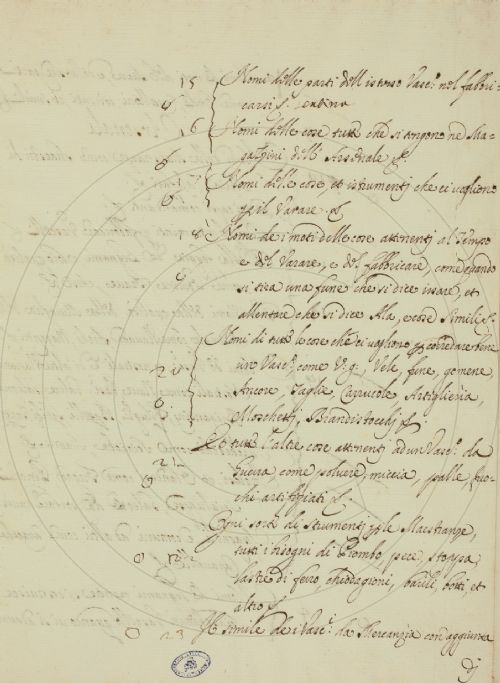 15 Nomi delle parti dell istesso Vasc.º nel fabbri-
carsi &.
16 Nomi delle cose tutte che si tengono ne Ma-
gazzini dell Arsenale &.
17 Nomi delle cose et istrumentj che ci vogliono
p il Varare &
18 Nomi de i moti delle cose attenentj al Tempo
e del Varare, e del fabbricare, come quando
si tira una fune che si dice issare, et
allentare che si dice Ala, e cose Simile &.
Nomi di tutte le cose che ci vogliono p corredare bene
un Vasc.º come V: g: Vele, fune, gomene,
Ancore, Taglie, Carrucole Artiglieria,
Moschettj, &.
Et tutte l'altre cose attenentj ad un Vasc.º da
Guerra, come polvere, miccia, palle, fuo-
chi artifiziati &.
Ogni sorte di strumentj p le Maestranze,
tutti i bisogni di Piombo, pece, stoppa,
lastre di ferro chiodagioni, barili, botti, et
altro &
23 simile de i Vasc.i da Mercanzia con aggiunta
dj